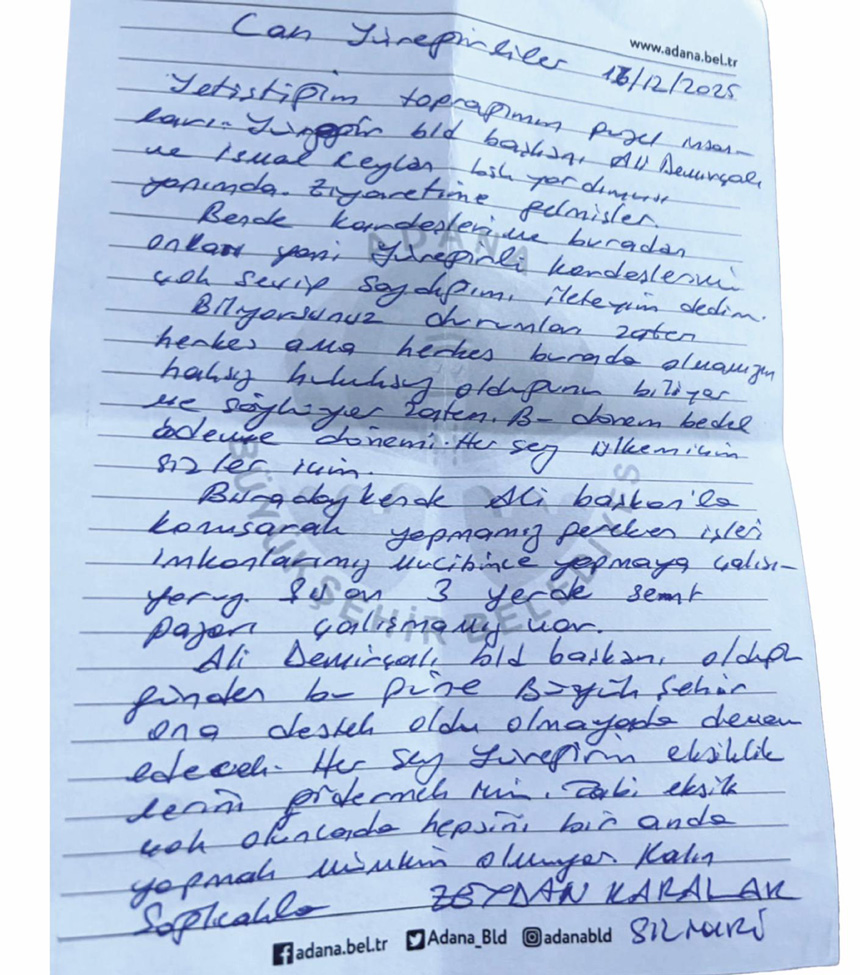 www.adana.bel.tr
Can Yüreğirliler 16/12/2025
Yetiştiğim toprağımın güzel insan-
ları. Yüreğir bld başkanı Ali Demirçalı
ve İsmail Ceylan bşk yardımcısı
yanında. Ziyaretime gelmişler.
Bende kardeşlerime buradan
onları yani Yüreğirli kardeşlerimi
çok sevip saydığımı ileteyim dedim.
Biliyorsunuz durumları zaten
herkes ama herkes burada olmamızın
haksız hukuksuz olduğunu biliyor
ve söylüyor zaten. Bu dönem bedel
ödeme dönemi. Her şey ülkem için
sizler için.
Buradayken de Ali başkan'la
konuşarak yapmamız gereken işleri
imkanlarımız mucibince yapmaya çalışı-
yoruz. Şu an 3 yerde semt
pazarı çalışmamız var.
Ali Demirçalı bld başkanı olduğu
günden bu güne Büyük Şehir
ona destek oldu olmayada devam
edecek. Her şey Yüreğirin eksiklik
lerini gidermek için. Tabi eksik
çok olunca da hepsini bir anda
yapmak mümkün olmuyor. Kalın
Sağlıcakla ZEYDAN KARALAR
SİLİVRİ
ADANA
BÜYÜKŞEHİR BELEDİYES
adana.bel.tr Adana_Bld adanabld